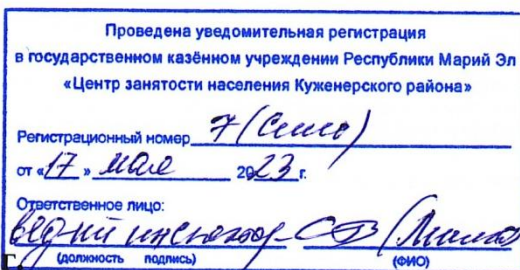 Проведена уведомительная регистрация
в государственном казённом учреждении Республики Марий Эл
«Центр занятости населения Куженерского района»
Регистрационный номер 7 (семь)
от «17» мая 2023 г.
Ответственное лицо:
ведущий инспектор
г.
(должность подпись) (ФИО)